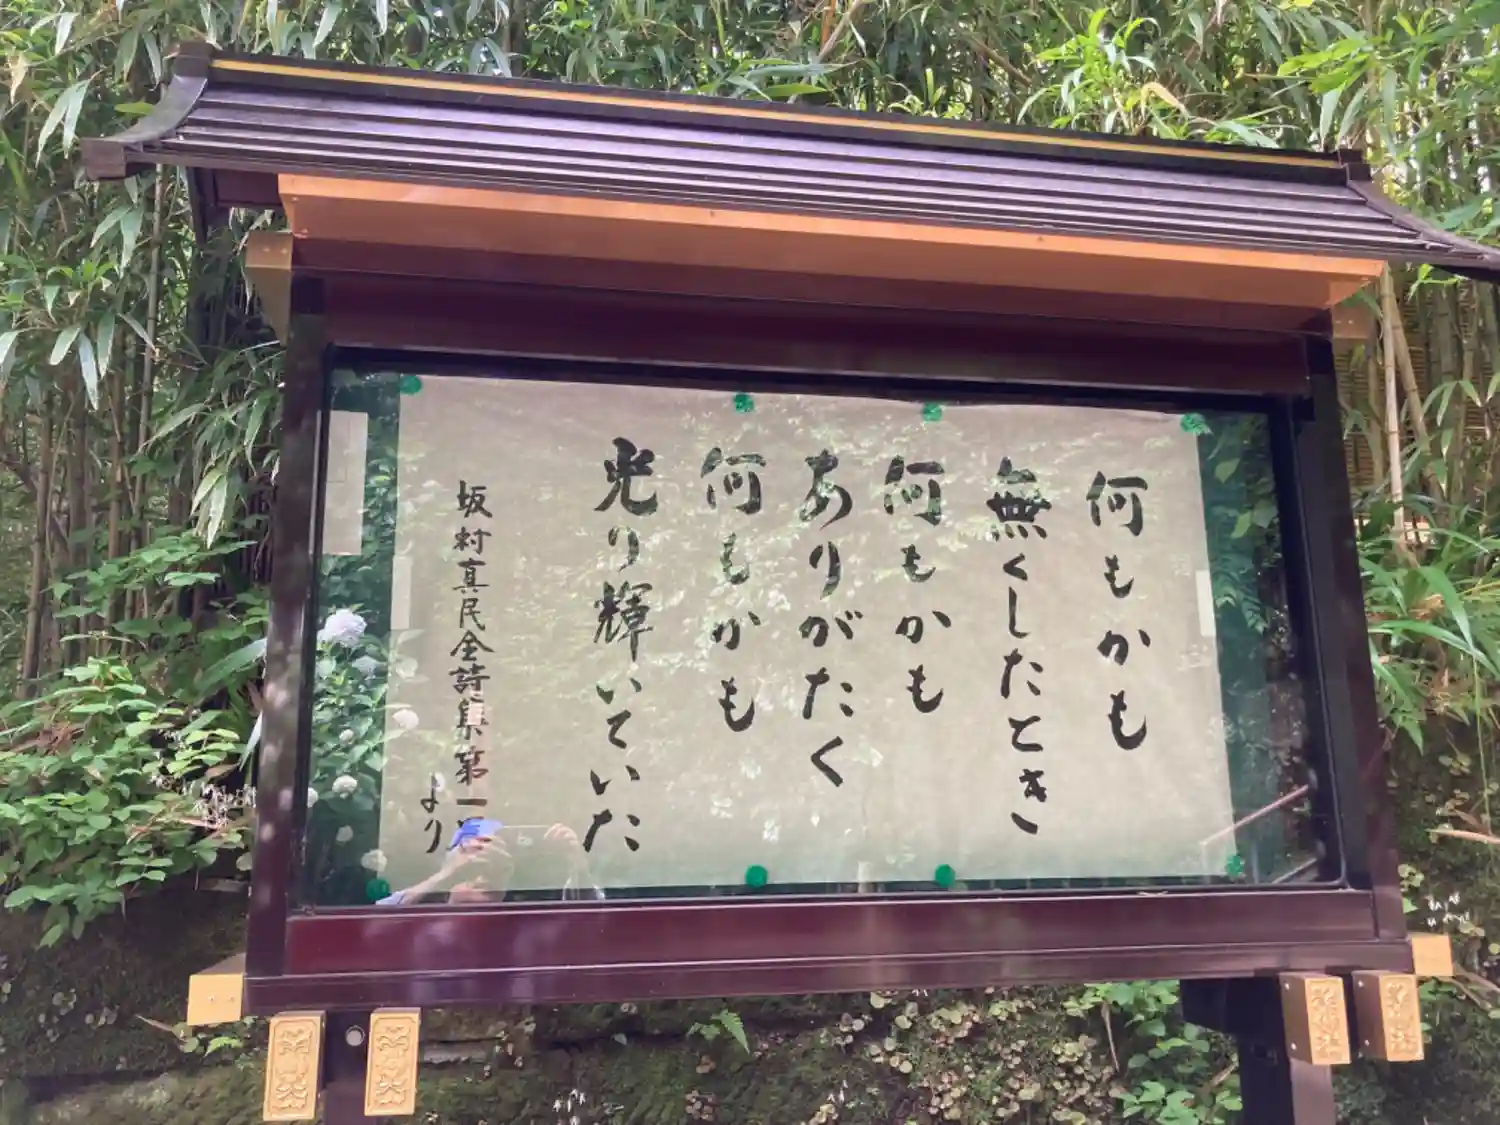 何もかも
無くしたとき
何もかも
ありがたく
何もかも
光り輝いていた
坂村真民全詩集第一巻
より